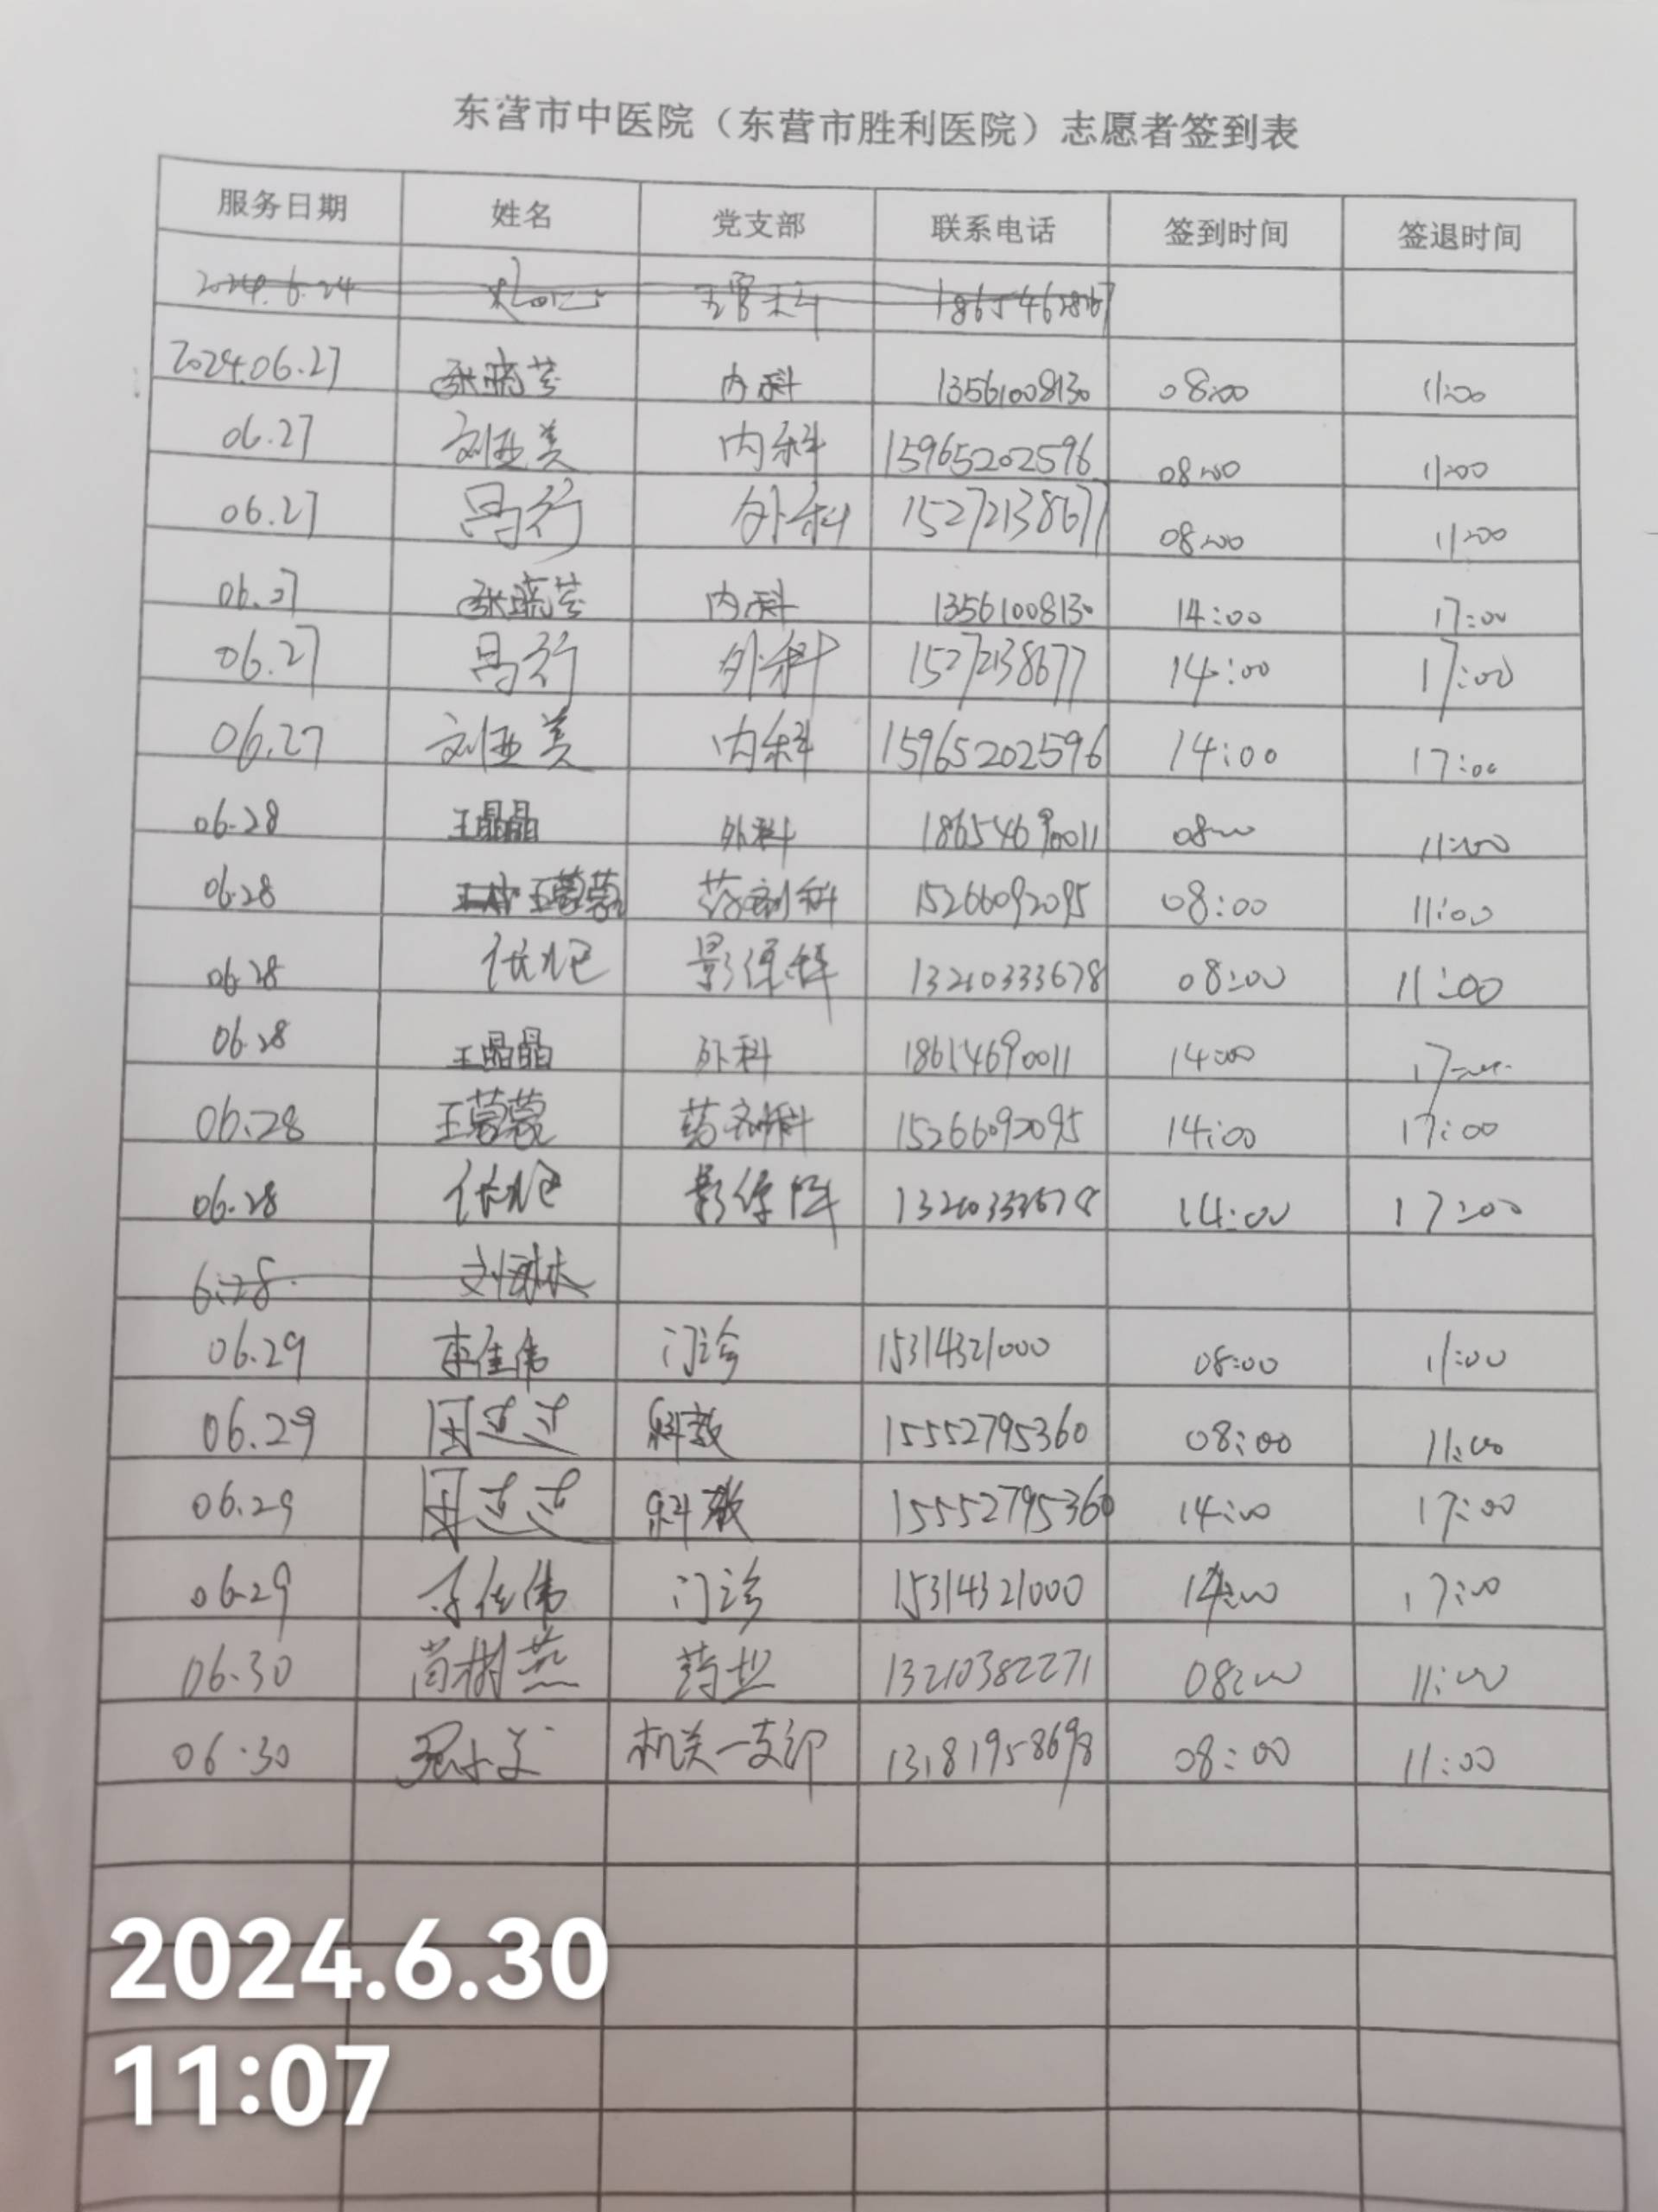 东营市中医院（东营市胜利医院）志愿者签到表
服务日期 姓名 党支部 联系电话 签到时间 签退时间
2024.6.24 五官科
2024.06.27 张晓芸 内科 13561008130 08:00 11:00
06.27 刘亚美 内科 15965202596 08:00 11:00
06.27 吕行 外科 15272138677 08:00 11:00
06.27 张晓芸 内科 13561008130 14:00 17:00
06.27 吕行 外科 15272138677 14:00 17:00
06.27 刘亚美 内科 15965202596 14:00 17:00
06.28 王晶晶 外科 18654690011 08:00 11:00
06.28 王蒙蒙 药剂科 15266092095 08:00 11:00
06.28 影像科 13210333678 08:00 11:00
06.28 王晶晶 外科 18654690011 14:00 17:00
06.28 王蒙蒙 药剂科 15266092095 14:00 17:00
06.28 影像科 13210333678 14:00 17:00
6.28 刘
06.29 李佳伟 门诊 15314321000 08:00 11:00
06.29 周 科教 15552795360 08:00 11:00
06.29 周 科教 15552795360 14:00 17:00
06.29 李佳伟 门诊 15314321000 14:00 17:00
06.30 尚树燕 13210382271 08:00 11:00
06.30 机关一支部 13181958698 08:00 11:00
2024.6.30
11:07